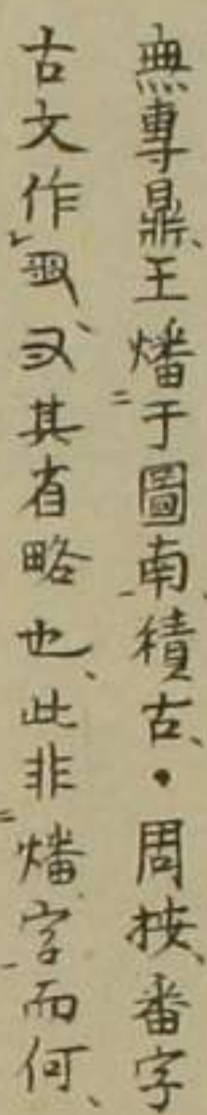 無專鼎、王燔于圖南積古、・周按、番字
古文作𠬢、又其省略也、此非燔字而何、